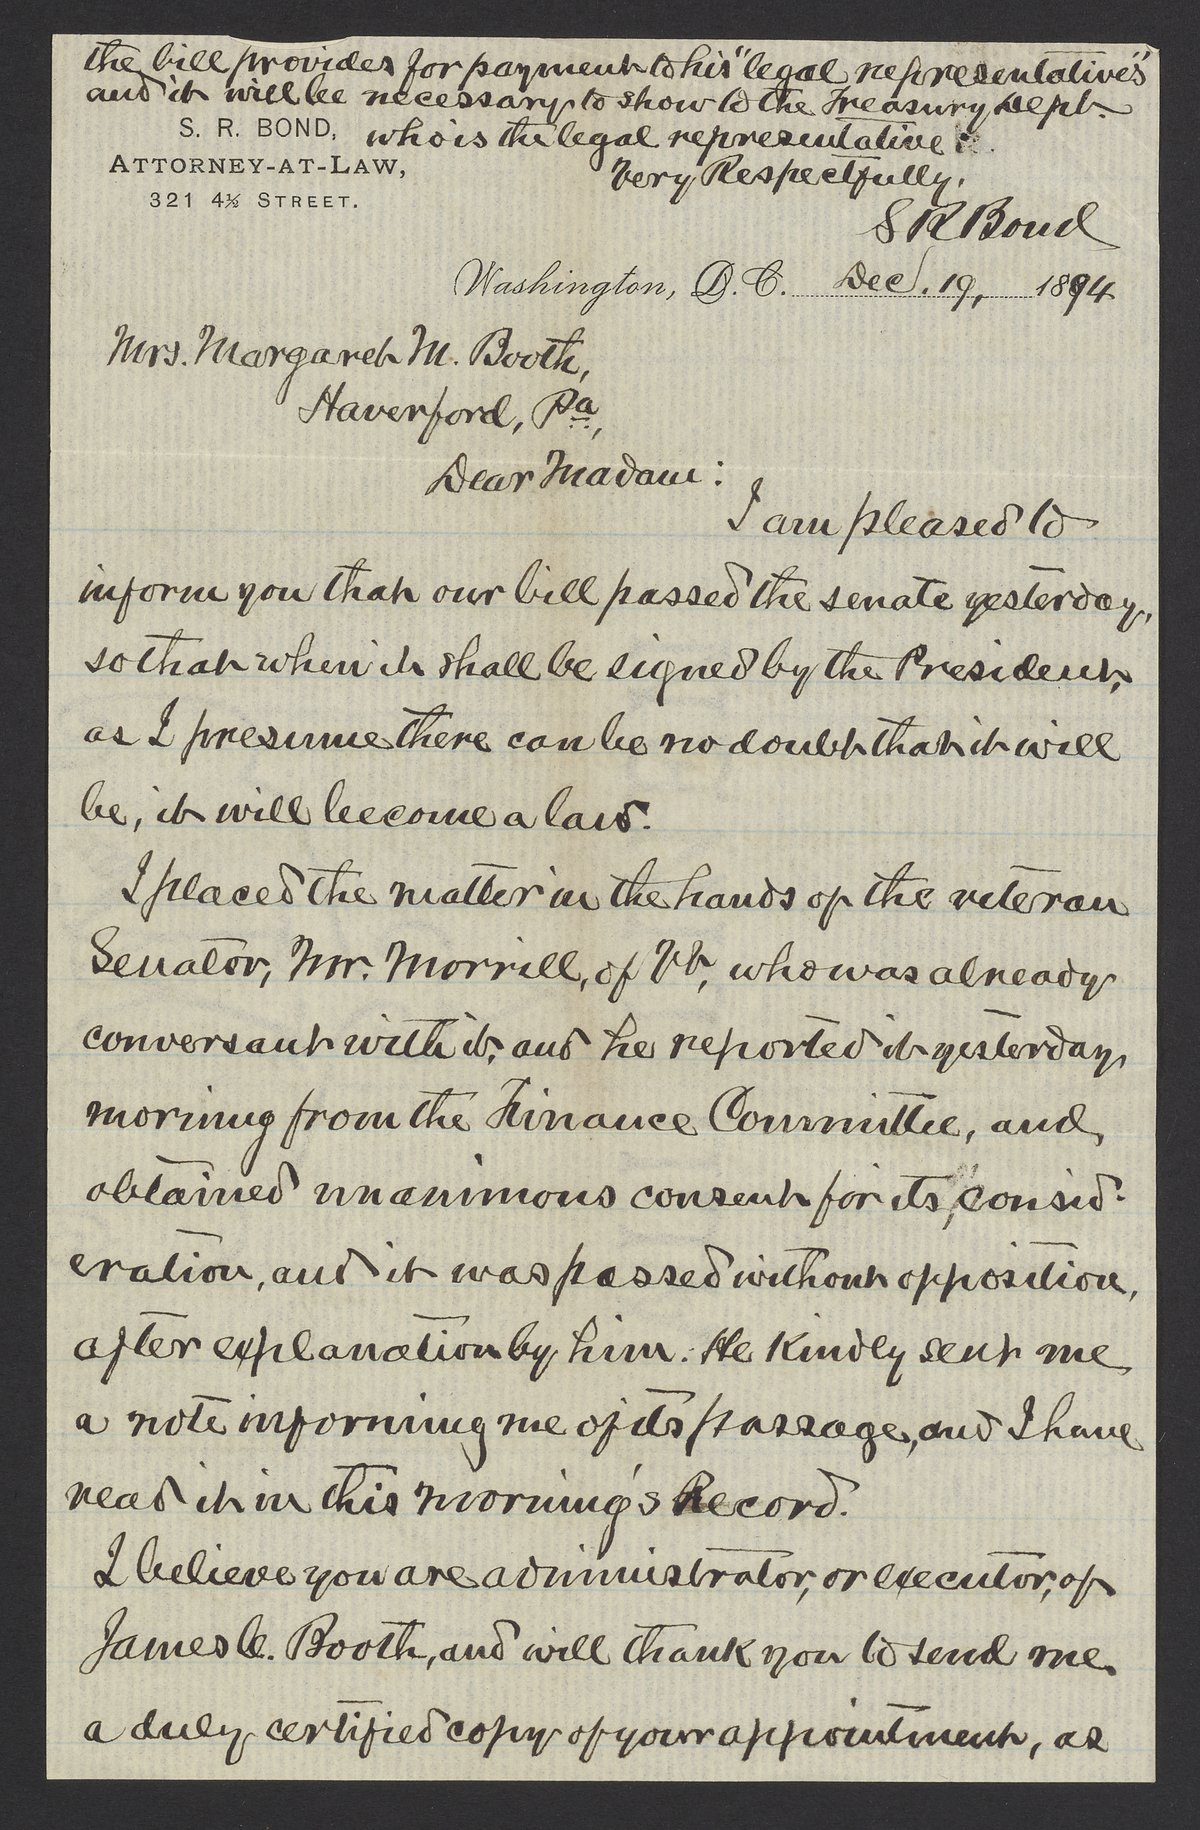 the bill provides for payment to his "legal representatives"
and it will be necessary to show to the Treasury Dept.
who is the legal representative.
Very Respectfully,
S R Bond
S. R. BOND,
ATTORNEY-AT-LAW,
321 4½ STREET.
Washington, D. C. Dec. 19, 1894
Mrs. Margaret M. Booth,
Haverford, Pa,
Dear Madam:
I am pleased to
inform you that our bill passed the senate yesterday,
so that when it shall be signed by the President,
as I presume there can be no doubt that it will
be, it will become a law.
I placed the matter in the hands of the veteran
Senator, Mr. Morrill, of Vt, who was already
conversant with it, and he reported it yesterday
morning from the Finance Committee, and
obtained unanimous consent for its consid-
eration, and it was passed without opposition,
after explanation by him. He kindly sent me
a note informing me of its passage, and I have
read it in this morning's Record.
I believe you are administrator, or executor, of
James C. Booth, and will thank you to send me
a duly certified copy of your appointment, as